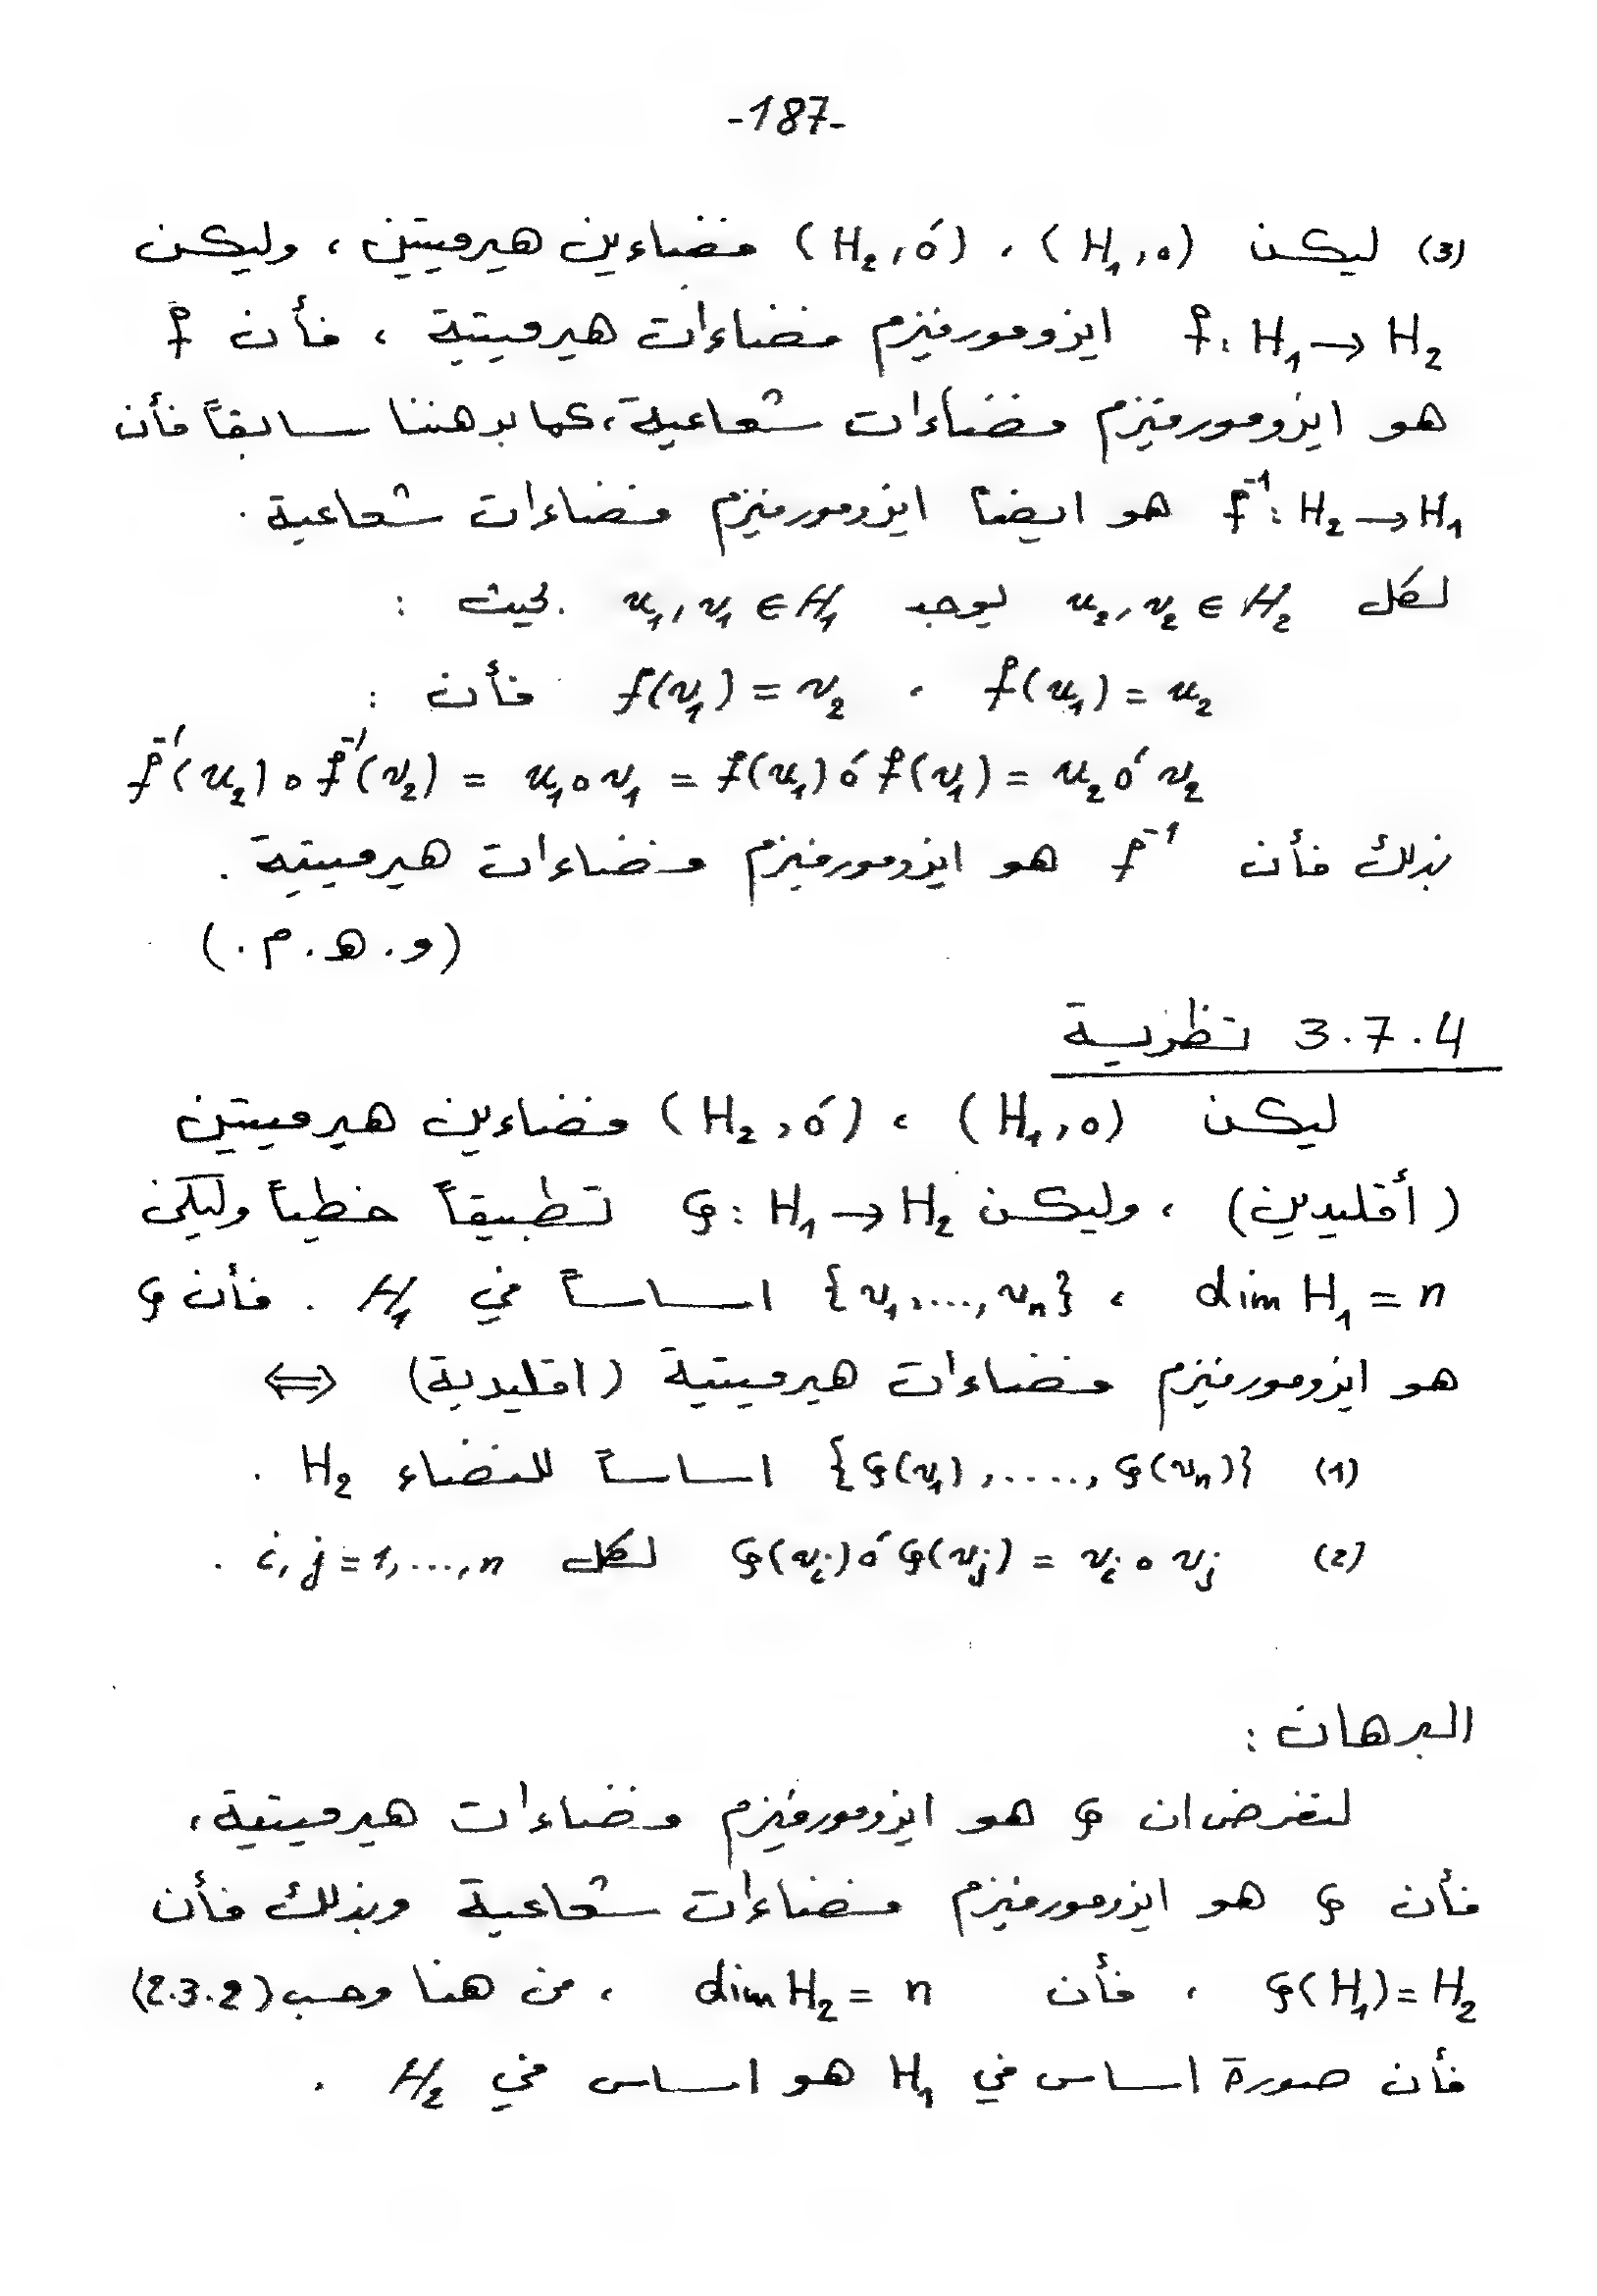 -187-
(3) ليكن (H₁,∘) ، (H₂,∘́) فضاءين هيرميتيين ، وليكن
f: H₁ → H₂ ايزومورفيزم فضاءات هيرميتية ، فأن f
هو ايزومورفيزم فضاءات شعاعية، كما برهننا سابقاً فأن
f⁻¹: H₂ → H₁ هو ايضاً ايزومورفيزم فضاءات شعاعية .
لكل u₂, v₂ ∈ H₂ يوجد u₁, v₁ ∈ H₁ بحيث :
f(u₁) = u₂ ، f(v₁) = v₂ فأن :
f⁻¹(u₂) ∘ f⁻¹(v₂) = u₁ ∘ v₁ = f(u₁) ∘́ f(v₁) = u₂ ∘́ v₂
بذلك فأن f⁻¹ هو ايزومورفيزم فضاءات هيرميتية .
(و . هـ . م .)
3.7.4 نظرية
ليكن (H₁,∘) ، (H₂,∘́) فضاءين هيرميتيين
(أقليديين) ، وليكن φ: H₁ → H₂ تطبيقاً خطياً وليكن
dim H₁ = n ، {v₁,...,vₙ} اساساً في H₁ . فأن φ
هو ايزومورفيزم فضاءات هيرميتية (اقليدية) ⟺
(1) {φ(v₁),....,φ(vₙ)} اساساً للفضاء H₂ .
(2) φ(vᵢ) ∘́ φ(vⱼ) = vᵢ ∘ vⱼ لكل i, j = 1,...,n .
البرهان :
لنفرض ان φ هو ايزومورفيزم فضاءات هيرميتية ،
فأن φ هو ايزومورفيزم فضاءات شعاعية وبذلك فأن
φ(H₁) = H₂ ، فأن dim H₂ = n ، من هنا وحسب (2.3.2)
فأن صورة اساس في H₁ هو اساس في H₂ .